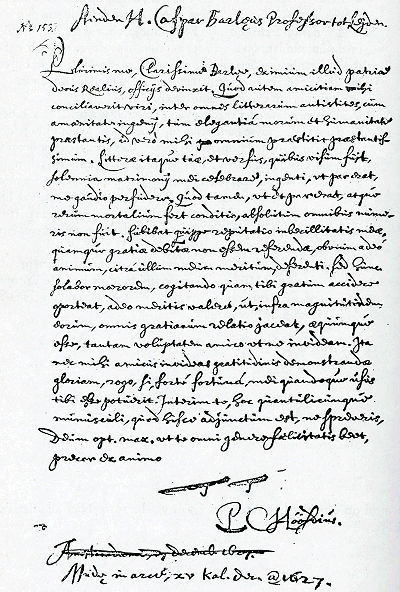 Aenden H. Casper Barlaeus Professor tot Leijden.
Plurimis me, Clarissime Barlaee, eximium illud patriae
decus Realius, officijs devinxit. Quod autem amicitiam mihi
conciliaverit viri, inter omnes litterarum antistites, cum
amoenitate ingenij, tum elegantia morum et humanitate
praestantis, id vero mihi omnium praestitit praestantis-
simum. Litterae itaque tuae, et versus, quibus visum fuit,
solemnia matrimonij mei celebrare, ingenti, ut par erat,
me gaudio perfudere. Quod tamen, ut par erat, atque
rerum mortalium fert conditio, absolutum omnibus nume-
ris non fuit. Subibat quippe cogitatio imbecillitatis meae,
quumque gratia debitae non esse referendae, obvium adeo
animum, citra illum meum meritum, deferenti. Sed hunc
solabar moerorem, cogitando quam tibi gratum accidere
oporteat, adeo meritis valere, ut, infra magnitudinem
eorum, omnis gratiarum relatio jaceat, aequumque
esse, tantam voluptatem amico ut ne invideam. Ita
nec mihi amicus invideas gratitudinis demonstrandae
gloriam, rogo, si forte fortuna, mei quandoque usus
tibi esse potuerit. Interim te, hoc quantulumcunque
munusculi, quod hisce adjunctum est, ne spreveris,
Deum opt. max. ut te omni genere felicitatis beet,
precor ex animo
P. C. Hoofdius.
Muda in arce, xv kal. dec. @ 1627.